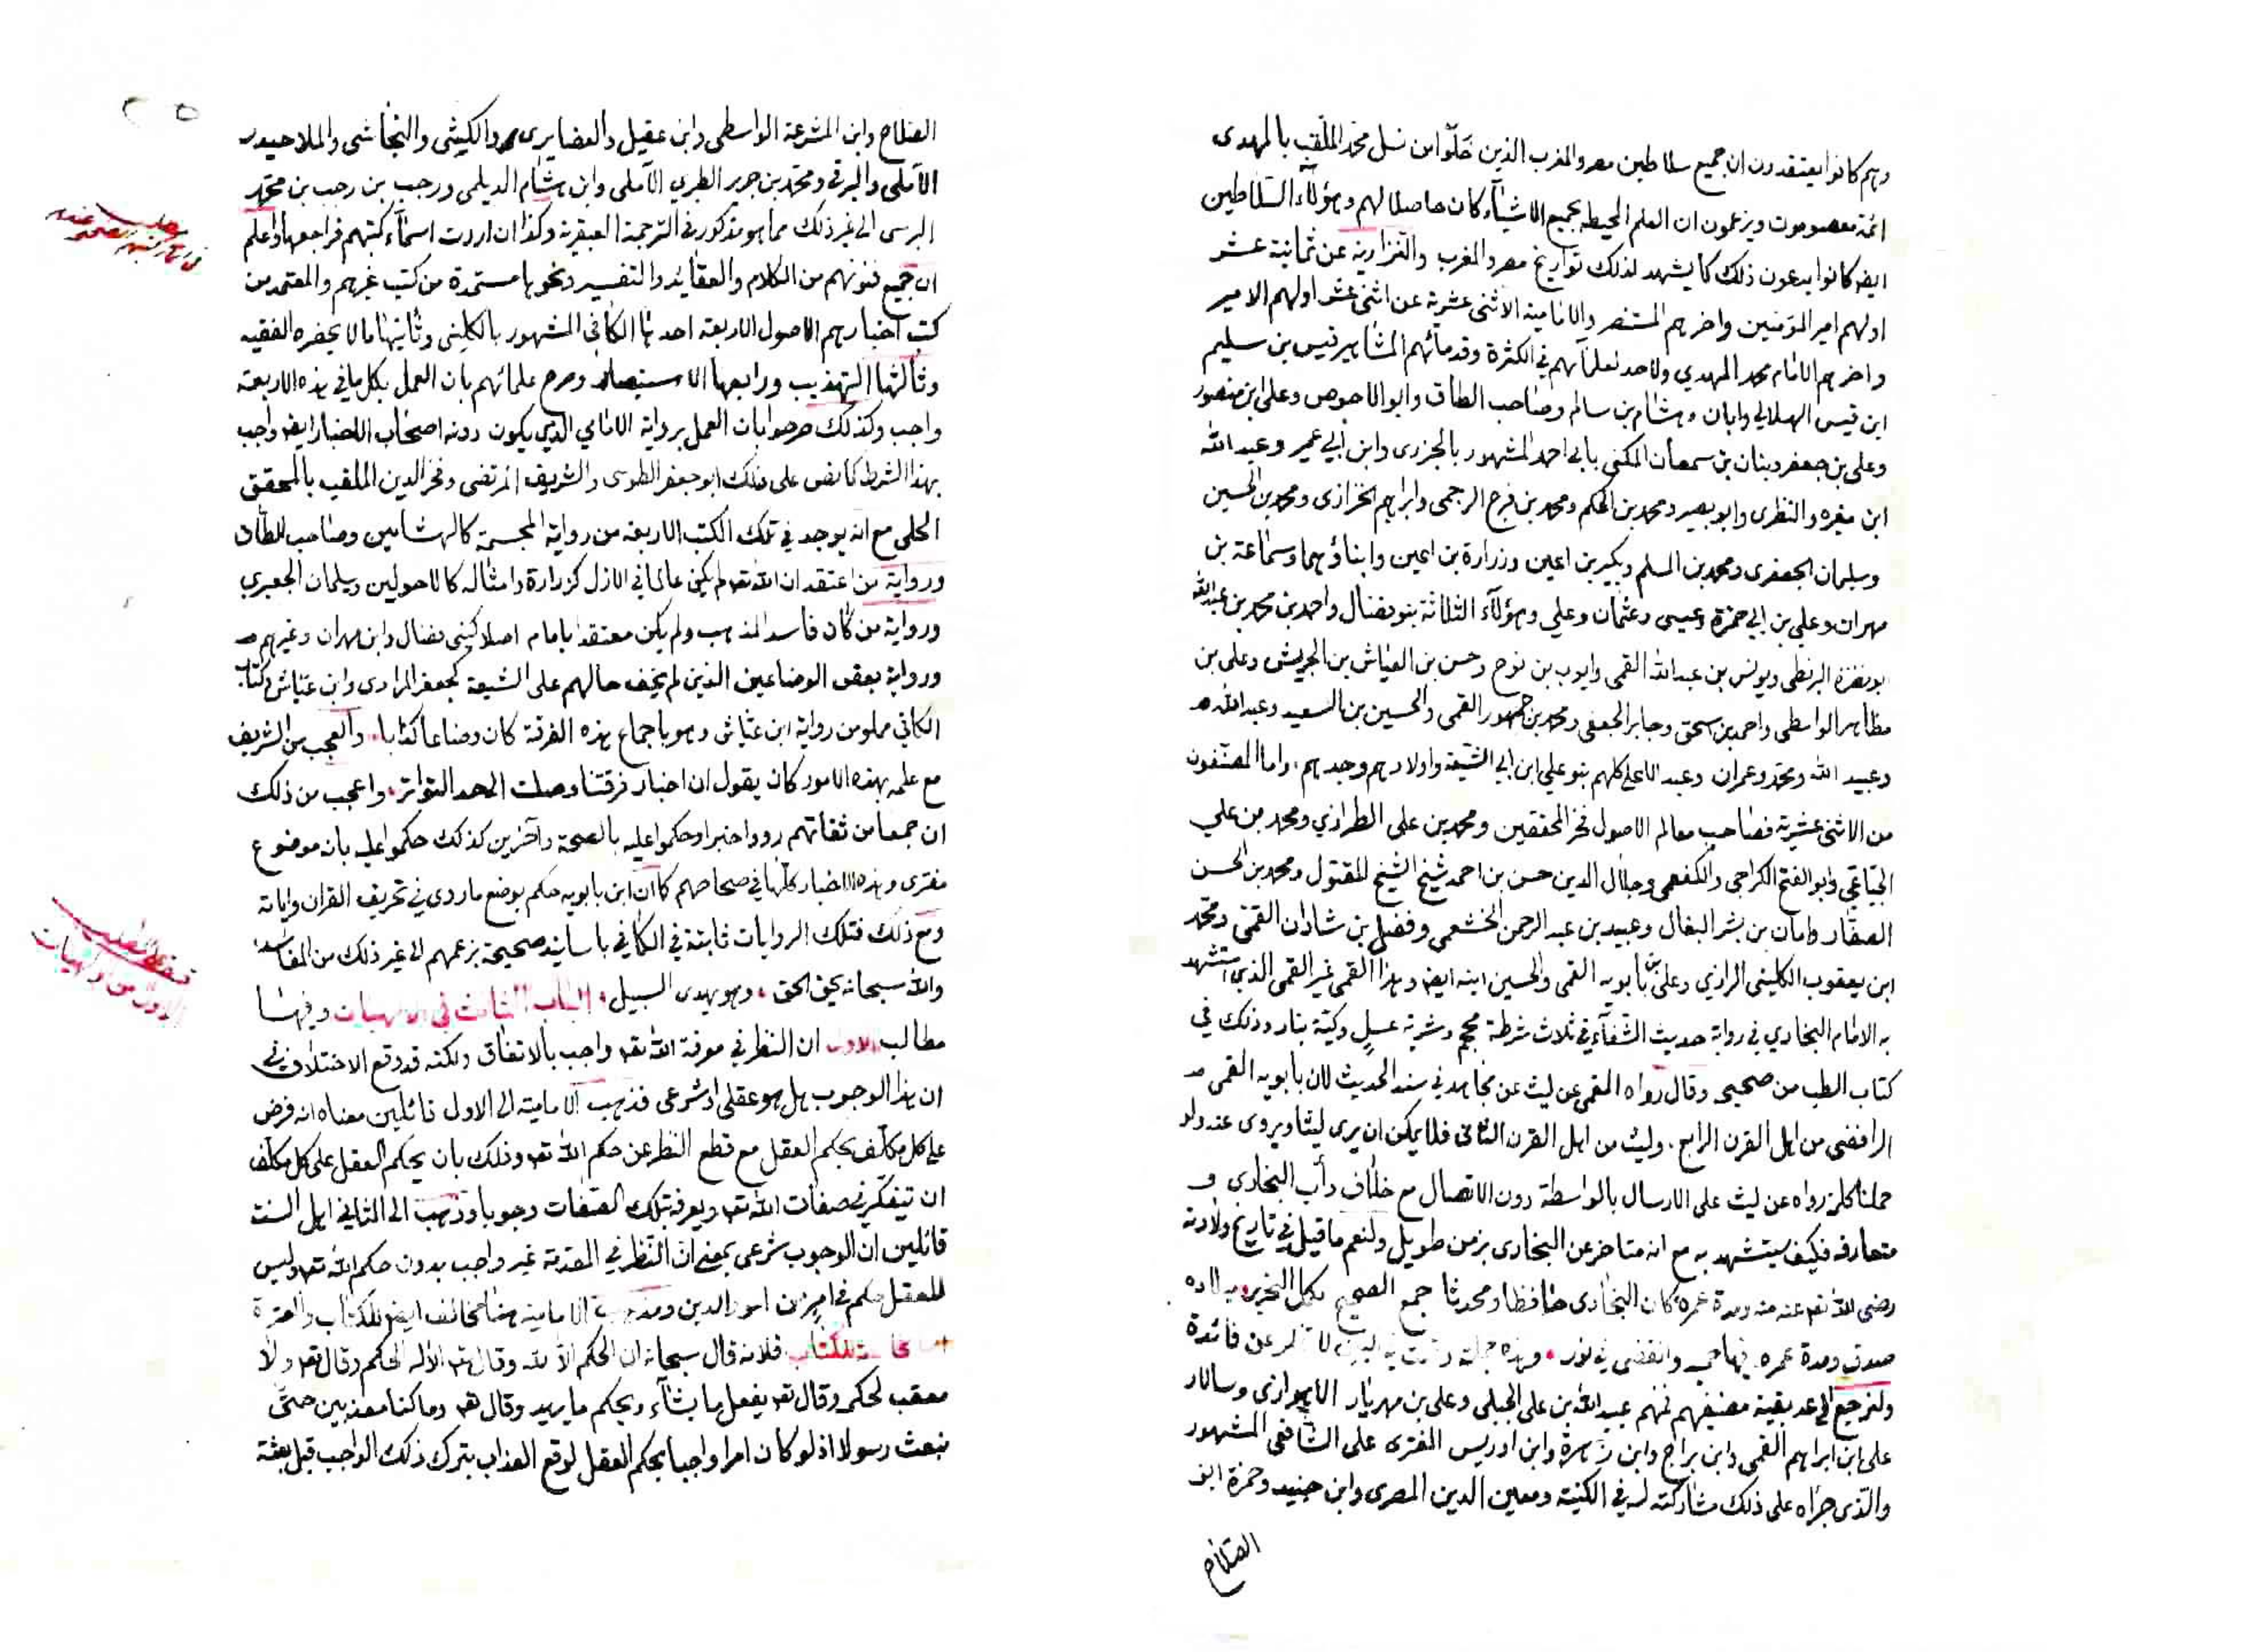 وهم كانوا يعتقدون ان جميع سلاطين مصر والمغرب الذين خلوا من نسل محمد الملقب بالمهدى
ائمة معصومون ويزعمون ان العلم المحيط بجميع الاشياء كان حاصلا لهم وهؤلاء السلاطين
ايضا كانوا يدعون ذلك كما يشهد لذلك تواريخ مصر والمغرب والنزارية عن ثمانية عشر
اولهم امير المؤمنين واخرهم المستنصر والامامية الاثنى عشرية عن اثنى عشر اولهم الامير
واخرهم الامام محمد المهدي ولا حد لعلمائهم في الكثرة وقدمائهم المشاهير قيس بن سليم
ابن قيس الهلالي وابان وهشام بن سالم وصاحب الطاق وابو الاحوص وعلى ابن منصور
وعلى بن جعفر وبنان بن سمعان المكنى بابي احمد المشهور بالجزرى وابن ابي عمير وعبد الله
ابن مغيره والنظرى وابو بصير ومحمد بن الحكم ومحمد بن فرج الرجمى وابراهيم الخزازى ومحمد بن الحسين
وسليمان الجعفرى ومحمد بن المسلم وبكير بن اعين وزرارة بن اعين وابناؤهما وسماعة بن
مهران وعلي بن ابي حمزة وعيسى وعثمان وعلي وهؤلاء الثلاثة بنو فضال واحمد بن محمد بن عبد الله
ابو نضرة البرنطى ويونس بن عبد الله القمى وايوب بن نوح وحسن بن العياش بن الجريش وعلى بن
مظاهر الواسطى واحمد بن سحق وجابر الجعفى ومحمد بن جمهور القمى والحسين بن السعيد وعبد الله
وعبيد الله ومحمد وعمران وعبد الاعلى كلهم بنو علي ابن ابي الشيعة واولادهم وجدهم، واما المصنفون
من الاثنى عشرية فصاحب معالم الاصول فخر المحققين ومحمد بن على الطرازي ومحمد بن علي
الجباعي وابو الفتح الكراجى والكفعمى وجلال الدين حسن بن احمد شيخ الشيخ المقتول ومحمد بن الحسن
الصفار وامان بن بشر البغال وعبيد بن عبد الرحمن الخشعمى وفضل بن شاذان القمى ومحمد
ابن يعقوب الكلينى الرازي وعلى بن بابويه القمى والحسين ابنه ايضا وهذا القمى غير القمى الذي استشهد
به الامام البخاري في رواية حديث الشفاء في ثلاث شرطة محجم وشربة عسل وكية بنار وذلك في
كتاب الطب من صحيحه وقال رواه القمى عن ليث عن مجاهد في سند الحديث لان بابويه القمى
الرافضى من اهل القرن الرابع، وليث من اهل القرن الثانى فلا يمكن ان يرى ليثا ويروى عنه ولو
حملنا كلمة رواه عن ليث على الارسال بالواسطة دون الاتصال مع خلاف دأب البخارى و
متعارفه فكيف يستشهد به مع انه متاخر عن البخارى بزمن طويل ولنعم ما قيل في تاريخ ولادته
رضى الله تعه عنه ومدة عمره كان البخارى حافظا ومحدثا جمع الصحيح مكمل التحرير ميلاده
صدق ومدة عمره فيها حميد وانقضى في نور، وهذه جملة وقعت في البين لا تخلو عن فائدة
ولنرجع الى عد بقية مصنفيهم فمنهم عبيد الله بن على الحبلى وعلى بن مهزيار الاهوازى وسالار
على ابن ابراهيم القمى وابن براج وابن زهرة وابن ادريس المفترى على الشافعى المشهور
والذى جراه على ذلك مشاركته له في الكنية ومعين الدين المصرى وابن جنيد وحمزة ابو
الصلاح
٢٥
الصلاح وابن المشرعة الواسطى وابن عقيل والغضايرى والكيشى والنجاشى والملا حيدر
الآملى والبرقى ومحمد بن جرير الطبري الآملى وابن هشام الديلمى ورجب بن رجب بن محمد
البرسى الى غير ذلك مما هو مذكور في الترجمة العبقرية وكذا ان اردت اسماء كتبهم فراجعها واعلم
ان جميع فنونهم من الكلام والعقايد والتفسير ونحوها مستمدة من كتب غيرهم والمعتمد من
كتب اخبارهم الاصول الاربعة احدها الكافي المشهور بالكلينى وثانيها ما لا يحضره الفقيه
وثالثها التهذيب ورابعها الاستبصار وصرح علمائهم بان العمل بكل ما في هذه الاربعة
واجب وكذلك صرحوا بان العمل برواية الامامي الذي يكون دونه اصحاب الاخبار ايضا واجب
بهذا الشرط كما نص على ذلك ابو جعفر الطوسى والشريف المرتضى وفخر الدين الملقب بالمحقق
الحلى مع انه يوجد في تلك الكتب الاربعة من رواية المجسمة كالهشامين وصاحب الطاق
ورواية من اعتقد ان الله تعه لم يكن عالما في الازل كزرارة وامثاله كالاحولين وسليمان الجعبري
ورواية من كان فاسد المذهب ولم يكن معتقدا بامام اصلا كبنى فضال وابن مهران وغيرهم
ورواية بعض الوضاعين الذين لم يخف حالهم على الشيعة كجعفر المرادى وابن عياش وكتاب
الكافي مملو من رواية ابن عياش وهو باجماع هذه الفرقة كان وضاعا كذابا، والعجب من الشريف
مع علمه بهذه الامور كان يقول ان اخبار فرقتنا وصلت الى حد التواتر، واعجب من ذلك
ان جمعا من ثقاتهم رووا خبرا وحكموا عليه بالصحة وآخرين كذلك حكموا عليه بانه موضوع
مفترى وهذه الاخبار كلها في صحاحهم كما ان ابن بابويه حكم بوضع ما روى في تحريف القران واياته
ومع ذلك فتلك الروايات ثابتة في الكافي باسانيد صحيحة بزعمهم الى غير ذلك من المفاسد،
والله سبحانه يحق الحق، وهو يهدى السبيل، الباب الثالث فى الالهيات وفيها
مطالب الاول ان النظر في معرفة الله تعه واجب بالاتفاق ولكنه قد وقع الاختلاف في
ان هذا الوجوب هل هو عقلى او شرعى فذهب الامامية الى الاول قائلين معناه انه فرض
على كل مكلف بحكم العقل مع قطع النظر عن حكم الله تعه وذلك بان يحكم العقل على كل مكلف
ان يتفكر في صفات الله تعه ويعرفه بتلك الصفات وجوبا وذهب الى الثاني اهل السنة
قائلين ان الوجوب شرعى بمعنى ان النظر في المقدمة غير واجب بدون حكم الله تعه وليس
للعقل حكم في امر من امور الدين ومذهب الامامية هنا مخالف ايضا للكتاب والعترة
اما مخالفته للكتاب فلانه قال سبحانه ان الحكم الا لله وقال تعه الا له الحكم وقال تعه ولا
معقب لحكمه وقال تعه يفعل ما يشاء ويحكم ما يريد وقال تعه وما كنا معذبين حتى
نبعث رسولا اذ لو كان امرا واجبا بحكم العقل لوقع العذاب بترك ذلك الواجب قبل بعثة